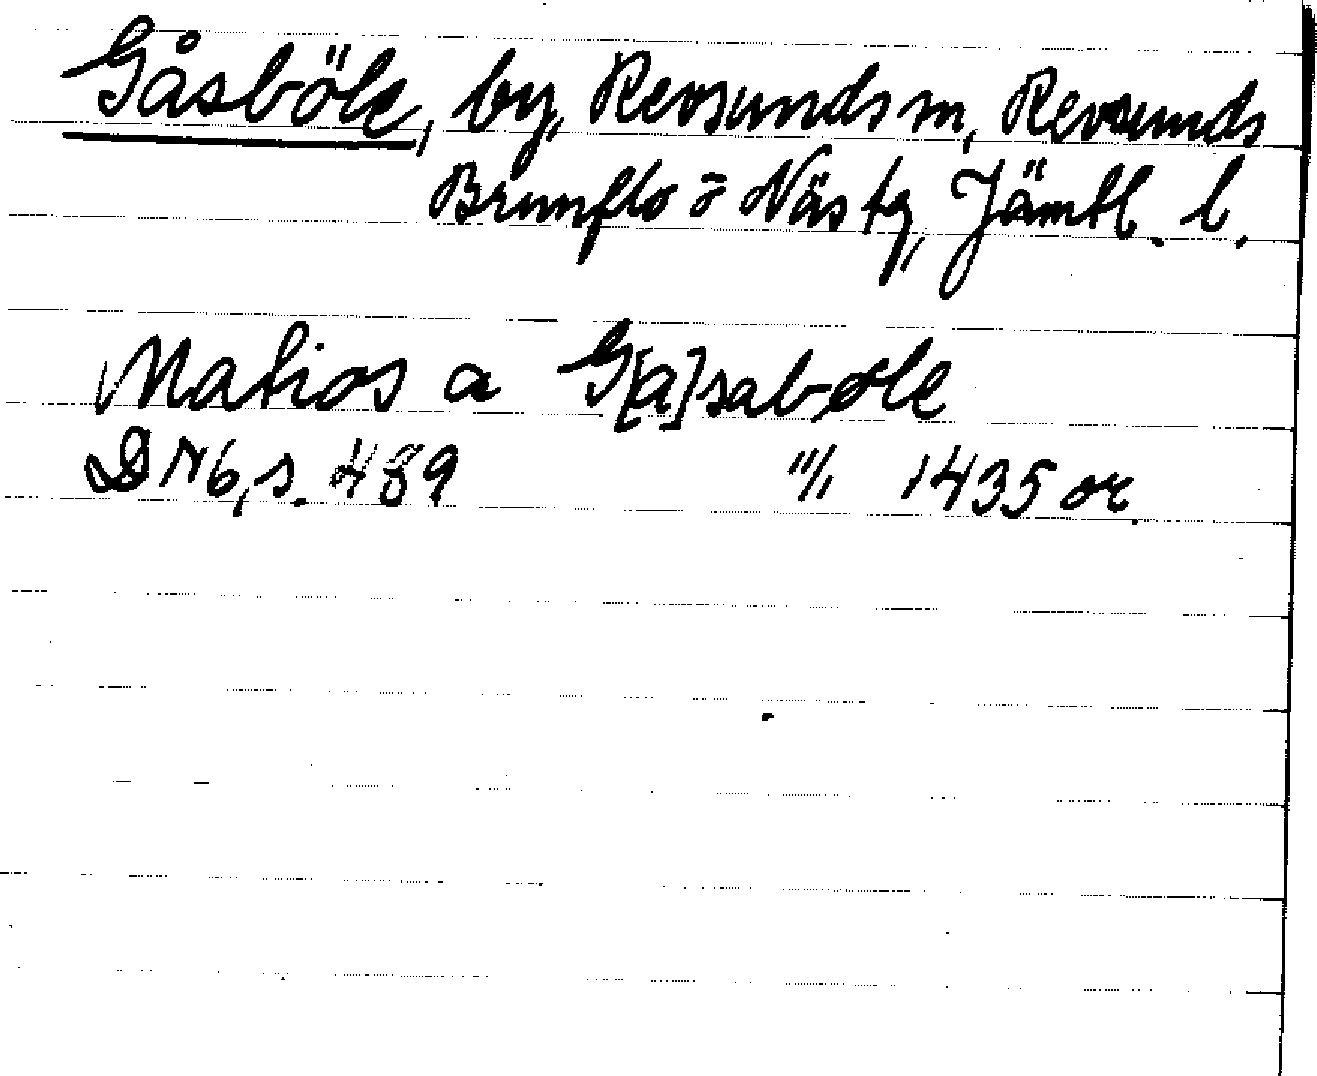 Gåsböle, by, Revsunds sn, Revsunds
Brunflo o Näs tg, Jämtl. l.
Matios a G[a]saböle
DN 6, s. 489 11/1 1435 or.